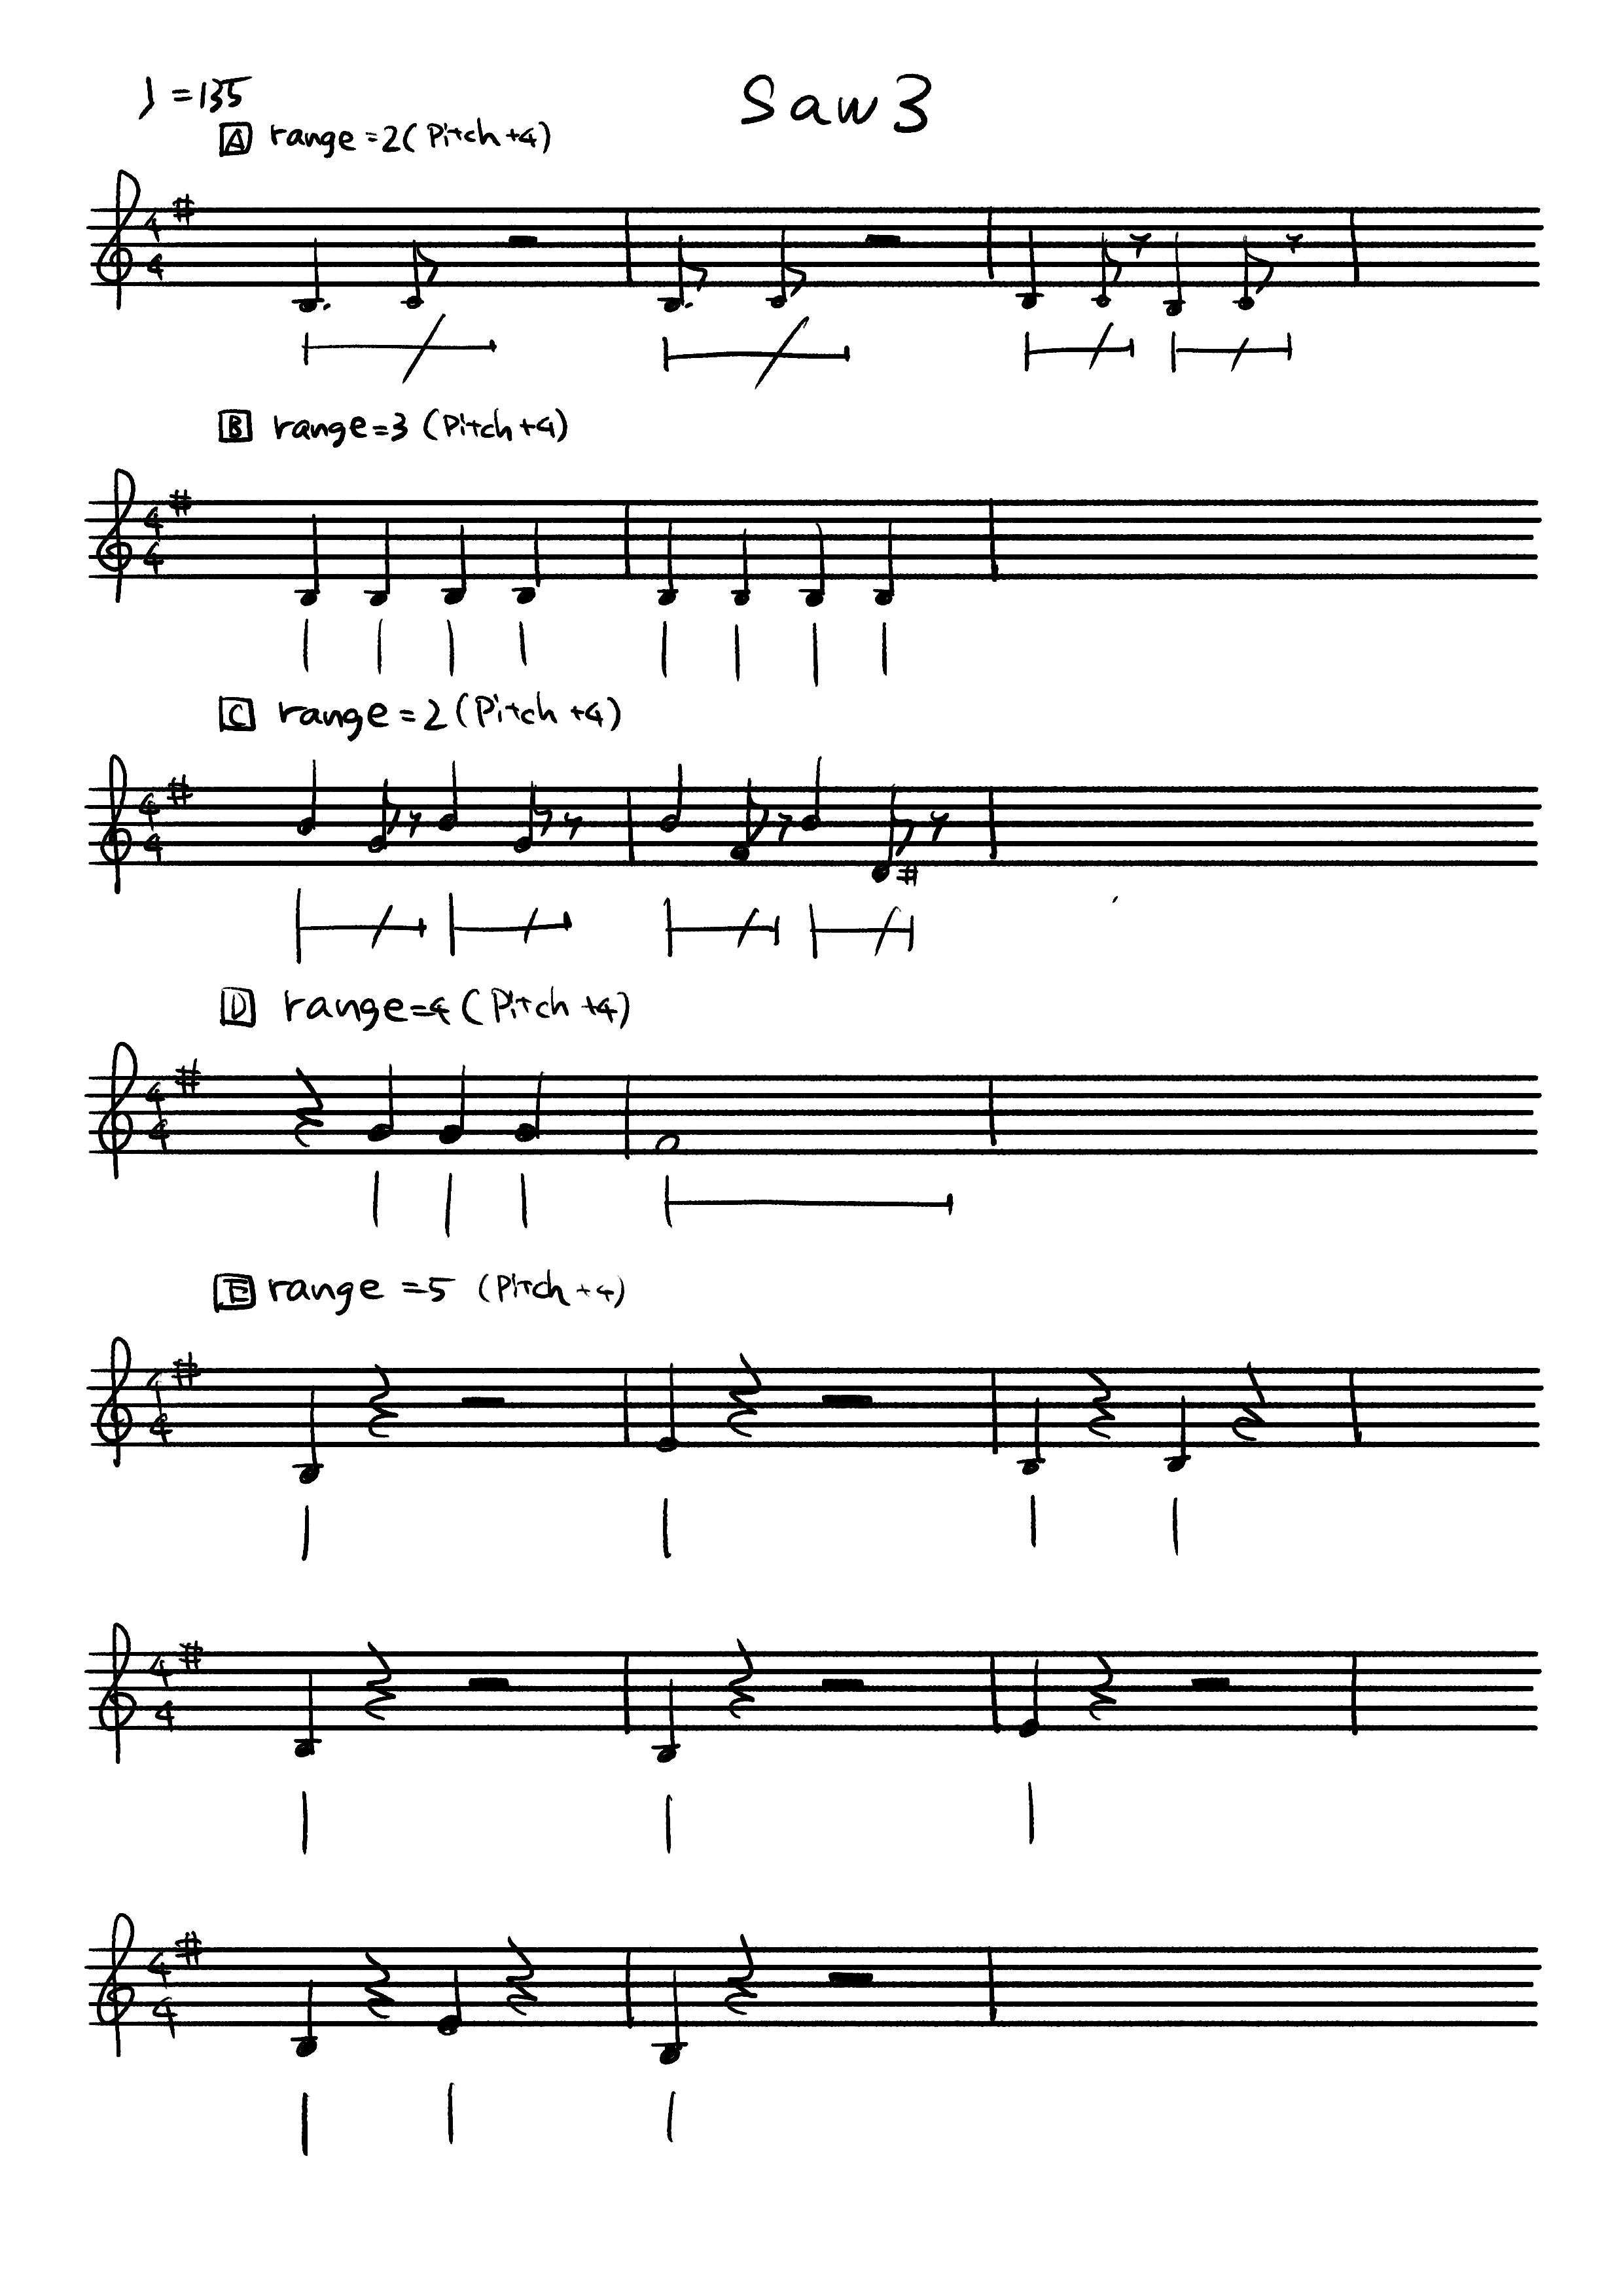 ♩=135
Saw3
A range=2(Pitch+4)
4
4
B range=3(Pitch+4)
4
4
C range=2(Pitch+4)
4
4
D range=4(Pitch+4)
4
4
E range=5 (Pitch+4)
4
4
4
4
4
4